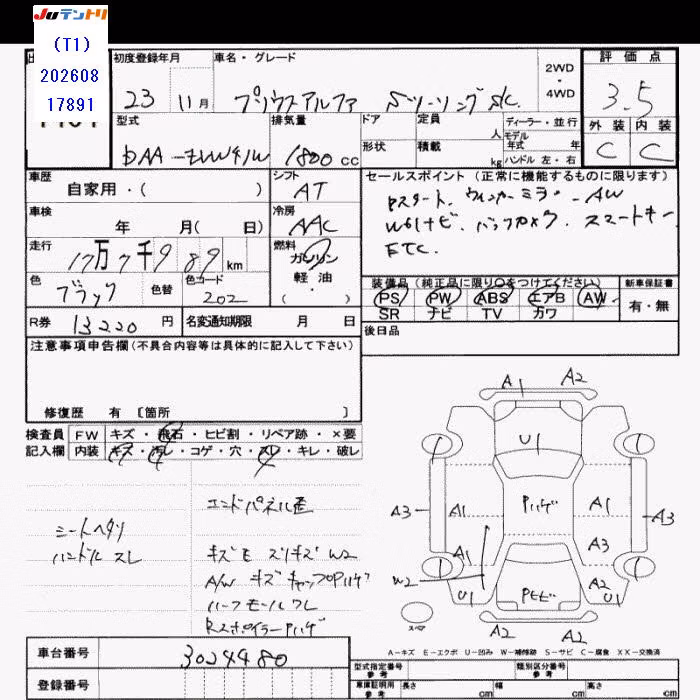 Juテントリ
(T1)
202608
17891
初度登録年月 車名・グレード 2WD・4WD 評価点
23 11月 プリウスアルファ Sツーリングs/c 3.5
型式 排気量 ドア 定員 人 ディーラー・並行 外装 内装
DAA-ZVW41W 1800cc 形状 積載 kg モデル年式 年 ハンドル 左・右 C C
車歴 自家用・( ) シフト AT セールスポイント (正常に機能するものに限ります)
Pスタート、ウィンカーミラー、AW
車検 年 月( 日) 冷房 AAC
W61ナビ、バックカメラ、スマートキー
ETC.
走行 17万7千9 89km 燃料 ガソリン 軽油・( )
色 ブラック 色替 色コード 202
装備品 (純正品に限り○をつけてください) 新車保証書
PS PW ABS エアB AW 有・無
SR ナビ TV カワ
R券 13220円 名変通知期限 月 日 後日品
注意事項申告欄(不具合内容等は具体的に記入して下さい)
修復歴 有 [箇所 ]
検査員 FW キズ・飛石・ヒビ割・リペア跡・×要
記入欄 内装 キズ・汚レ・コゲ・穴・スレ・キレ・破レ
エンドパネル歪
シートヘタリ
ハンドル スレ
キズE スリキズ W2
A/W キズ キャップPハゲ
ハーフモールワレ
Rスポイラー Pハゲ
A1 A2
U1
Pハゲ
A3 A1 A1 A3
A1 A3
W2 U1 Pヒビ A2 U1
A2 A2
スペア
A-キズ E-エクボ U-凹み W-補修跡 S-サビ C-腐食 XX-交換済
車台番号 3024480
登録番号
型式指定番号 参考 類別区分番号 参考
車庫証明用 参考 長さ cm 幅 cm 高さ cm